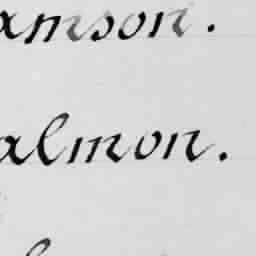 amson.
almon.